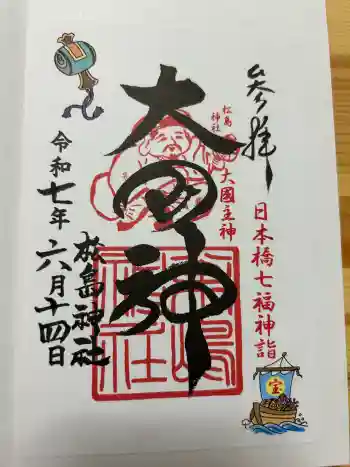 奉拝
日本橋七福神詣
宝
松島
神社
大國主神
大国神
松島神社
令和七年
六月十四日